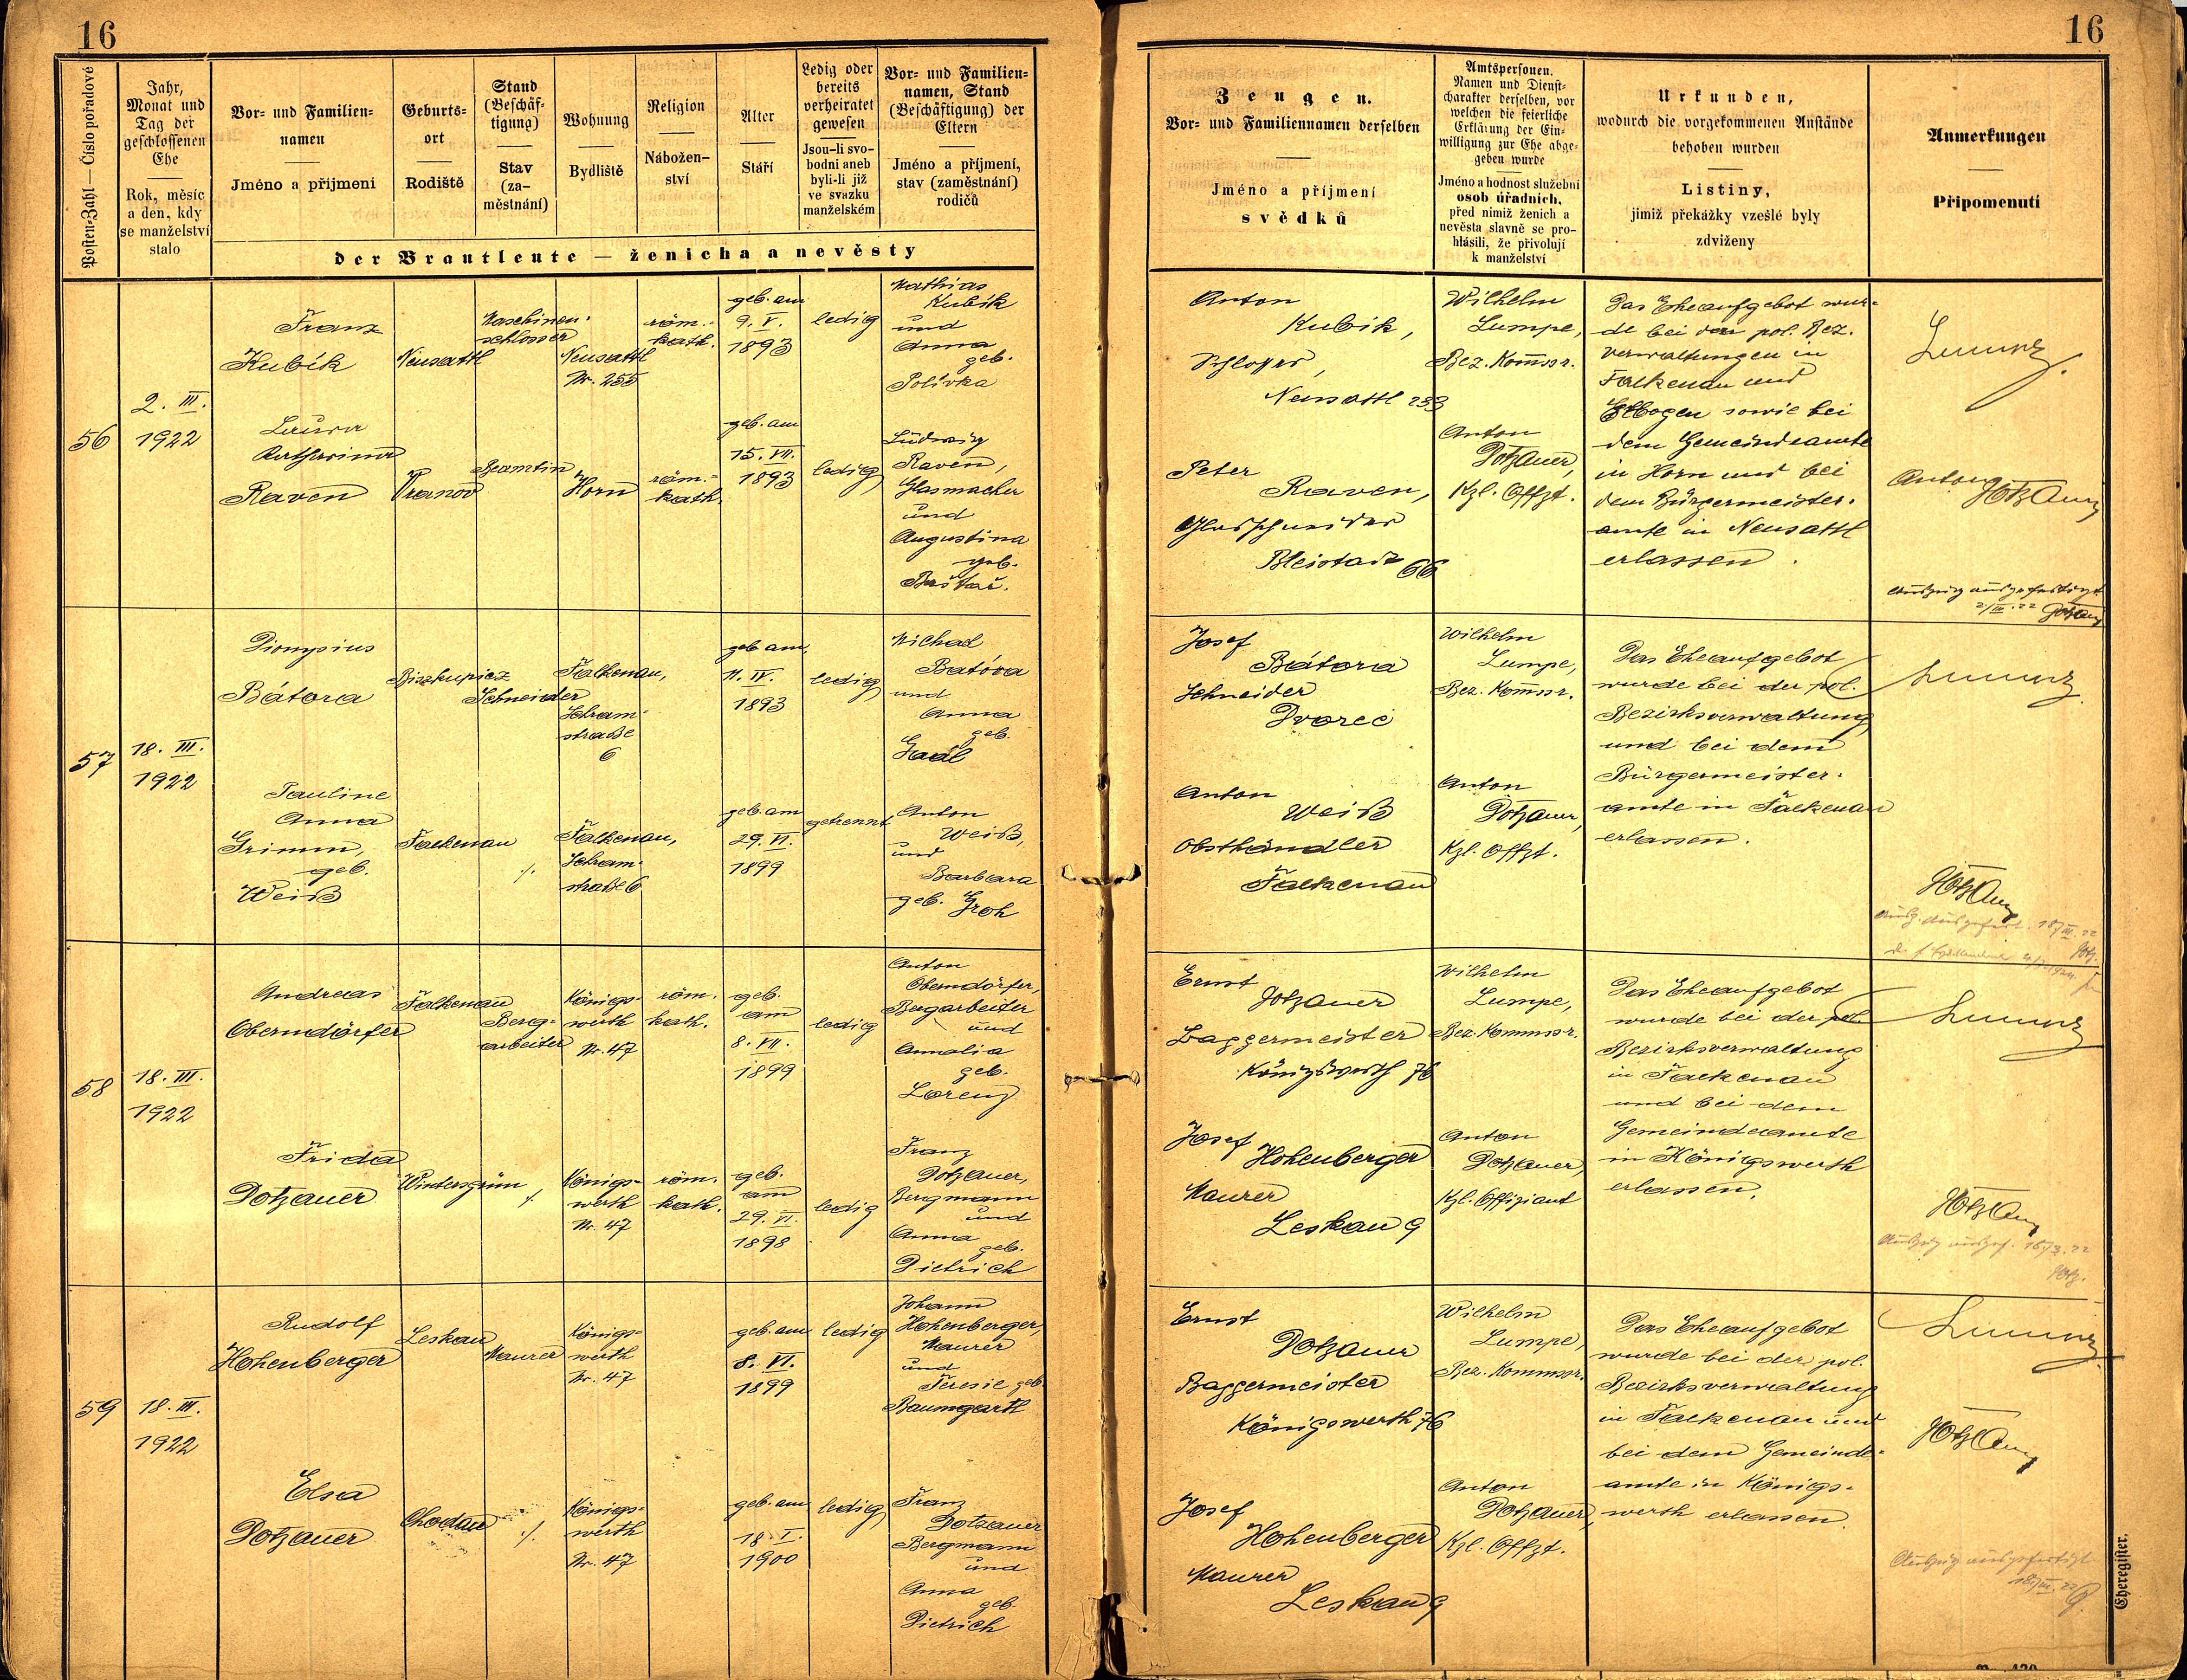 16
Posten-Zahl — Číslo pořadové
Jahr,
Monat und
Tag der
geschlossenen
Ehe
Rok, měsíc
a den, kdy
se manželství
stalo
Vor- und Familien-
namen
Jméno a příjmení
Geburts-
ort
Rodiště
Stand
(Beschäf-
tigung)
Stav
(za-
městnání)
Wohnung
Bydliště
Religion
Nábožen-
ství
Alter
Stáří
Ledig oder
bereits
verheiratet
gewesen
Jsou-li svo-
bodni aneb
byli-li již
ve svazku
manželském
Vor- und Familien-
namen, Stand
(Beschäftigung) der
Eltern
Jméno a příjmení,
stav (zaměstnání)
rodičů
der Brautleute — ženicha a nevěsty
56
2. III.
1922
Franz
Kubík
Neusattl
Maschinen-
schlosser
Neusattl
Nr. 255
röm.-
kath.
geb. am
9. V.
1893
ledig
Mathias
Kubík
und
Anna
geb.
Polívka
Laura
Katharina
Raven
Vranov
Beamtin
Horn
röm.-
kath.
geb. am
15. VII.
1893
ledig
Ludwig
Raven,
Glasmacher
und
Augustina
geb.
Baštař.
57
18. III.
1922
Dionysius
Bátora
Biszkupicz
Schneider
Falkenau,
Schram-
straße
6
geb. am
11. IV.
1893
ledig
Michal
Batóra
und
Anna
geb.
Gaál
Pauline
Anna
Grimm,
geb.
Weiß
Falkenau
./.
Falkenau,
Schram-
straße 6
geb. am
29. VI.
1899
getrennt
Anton
Weiß,
und
Barbara
geb. Groh
58
18. III.
1922
Andreas
Oberndörfer
Falkenau
Berg-
arbeiter
Königs-
werth
Nr. 47
röm.
kath.
geb.
am
8. VII.
1899
ledig
Anton
Oberndörfer,
Bergarbeiter
und
Annalia
geb.
Lorenz
Frida
Dotzauer
Wintersgrün
./.
Königs-
werth
Nr. 47
röm.
kath.
geb.
am
29. VI.
1898
ledig
Franz
Dotzauer,
Bergmann
und
Anna
geb.
Dietrich
59
18. III.
1922
Rudolf
Hohenberger
Leskau
Maurer
Königs-
werth
Nr. 47
geb. am
8. VI.
1899
ledig
Johann
Hohenberger,
Maurer
und
Teresie geb.
Baumgartl
Elsa
Dotzauer
Chodau
./.
Königs-
werth
Nr. 47
geb. am
18. I.
1900
ledig
Franz
Dotzauer
Bergmann
und
Anna
geb.
Dietrich
16
Zeugen.
Vor- und Familiennamen derselben
Jméno a příjmení
svědků
Amtspersonen.
Namen und Dienst-
charakter derselben, vor
welchen die feierliche
Erklärung der Ein-
willigung zur Ehe abge-
geben wurde
Jméno a hodnost služební
osob úřadních,
před nimiž ženich a
nevěsta slavně se pro-
hlásili, že přivolují
k manželství
Urkunden,
wodurch die vorgekommenen Anstände
behoben wurden
Listiny,
jimiž překážky vzešlé byly
zdviženy
Anmerkungen
Připomenutí
Anton
Kubik,
Schlosser,
Neusattl 233
Peter
Raven,
Glasschneider
Bleistadt 66
Wilhelm
Lumpe,
Bez. Kommsr.
Anton
Dotzauer,
Kzl. Offzt.
Das Eheaufgebot wur-
de bei den pol. Bez.
verwaltungen in
Falkenau und
Elbogen sowie bei
dem Gemeindeamte
in Horn und bei
dem Bürgermeister-
amte in Neusattl
erlassen.
Lumpe
Anton Dotzauer
Auszug ausgefertigt
2/III. 22 Dotzauer
Josef
Bátora
Schneider
Dvorec
Anton
Weiß
Obsthändler
Falkenau
Wilhelm
Lumpe,
Bez. Kommsr.
Anton
Dotzauer,
Kzl. Offzt.
Das Eheaufgebot
wurde bei der pol.
Bezirksverwaltung
und bei dem
Bürgermeister-
amte in Falkenau
erlassen.
Lumpe
Dotzauer
Ausz. ausgefert. 18/III. 22
Dotz.
Ernst
Dotzauer
Baggermeister
Königswerth 76
Josef
Hohenberger
Maurer
Leskau 9
Wilhelm
Lumpe,
Bez. Kommsr.
Anton
Dotzauer,
Kzl. Offiziant
Das Eheaufgebot
wurde bei der pol.
Bezirksverwaltung
in Falkenau
und bei dem
Gemeindeamte
in Königswerth
erlassen.
Lumpe
Dotzauer
Auszug ausgef. 18/3. 22
Dotz.
Ernst
Dotzauer
Baggermeister
Königswerth 76
Josef
Hohenberger
Maurer
Leskau 9
Wilhelm
Lumpe,
Bez. Kommsr.
Anton
Dotzauer,
Kzl. Offzt.
Das Eheaufgebot
wurde bei der pol.
Bezirksverwaltung
in Falkenau und
bei dem Gemeinde-
amte in Königs-
werth erlassen.
Lumpe
Dotzauer
Auszug ausgefertigt
18/III. 22
Eheregister.